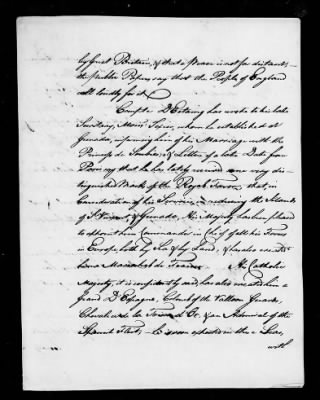 by Great Britain, & that a Peace is not far distant; —
the Public Papers say that the People of England
call loudly for it.
Compte D'Estaing has wrote to his late
Secretary, Monsr. here, whom he established at
Grenada, informing him of his Marriage with the
Princess de Soubise, & Letters of a late Date from
Paris say that he has lately received some very dis-
tinguished Marks of the Royal Favor; that, in
Consideration of his Services, in reducing the Islands
of St. Vincent, & Grenada, His Majesty has been pleased
to appoint him Commander in Chief of all his Forces
in Europe, both by Sea & by Land, & has also created
him a Marechal de France. His Catholic
Majesty, it is confidently said, has also created him a
Grand D'Espagne, Colonel of the Walloon Guards,
Chevalier de la Toison d'Or, & an Admiral of the
Spanish Fleet, — he is soon expected in these Seas,
with